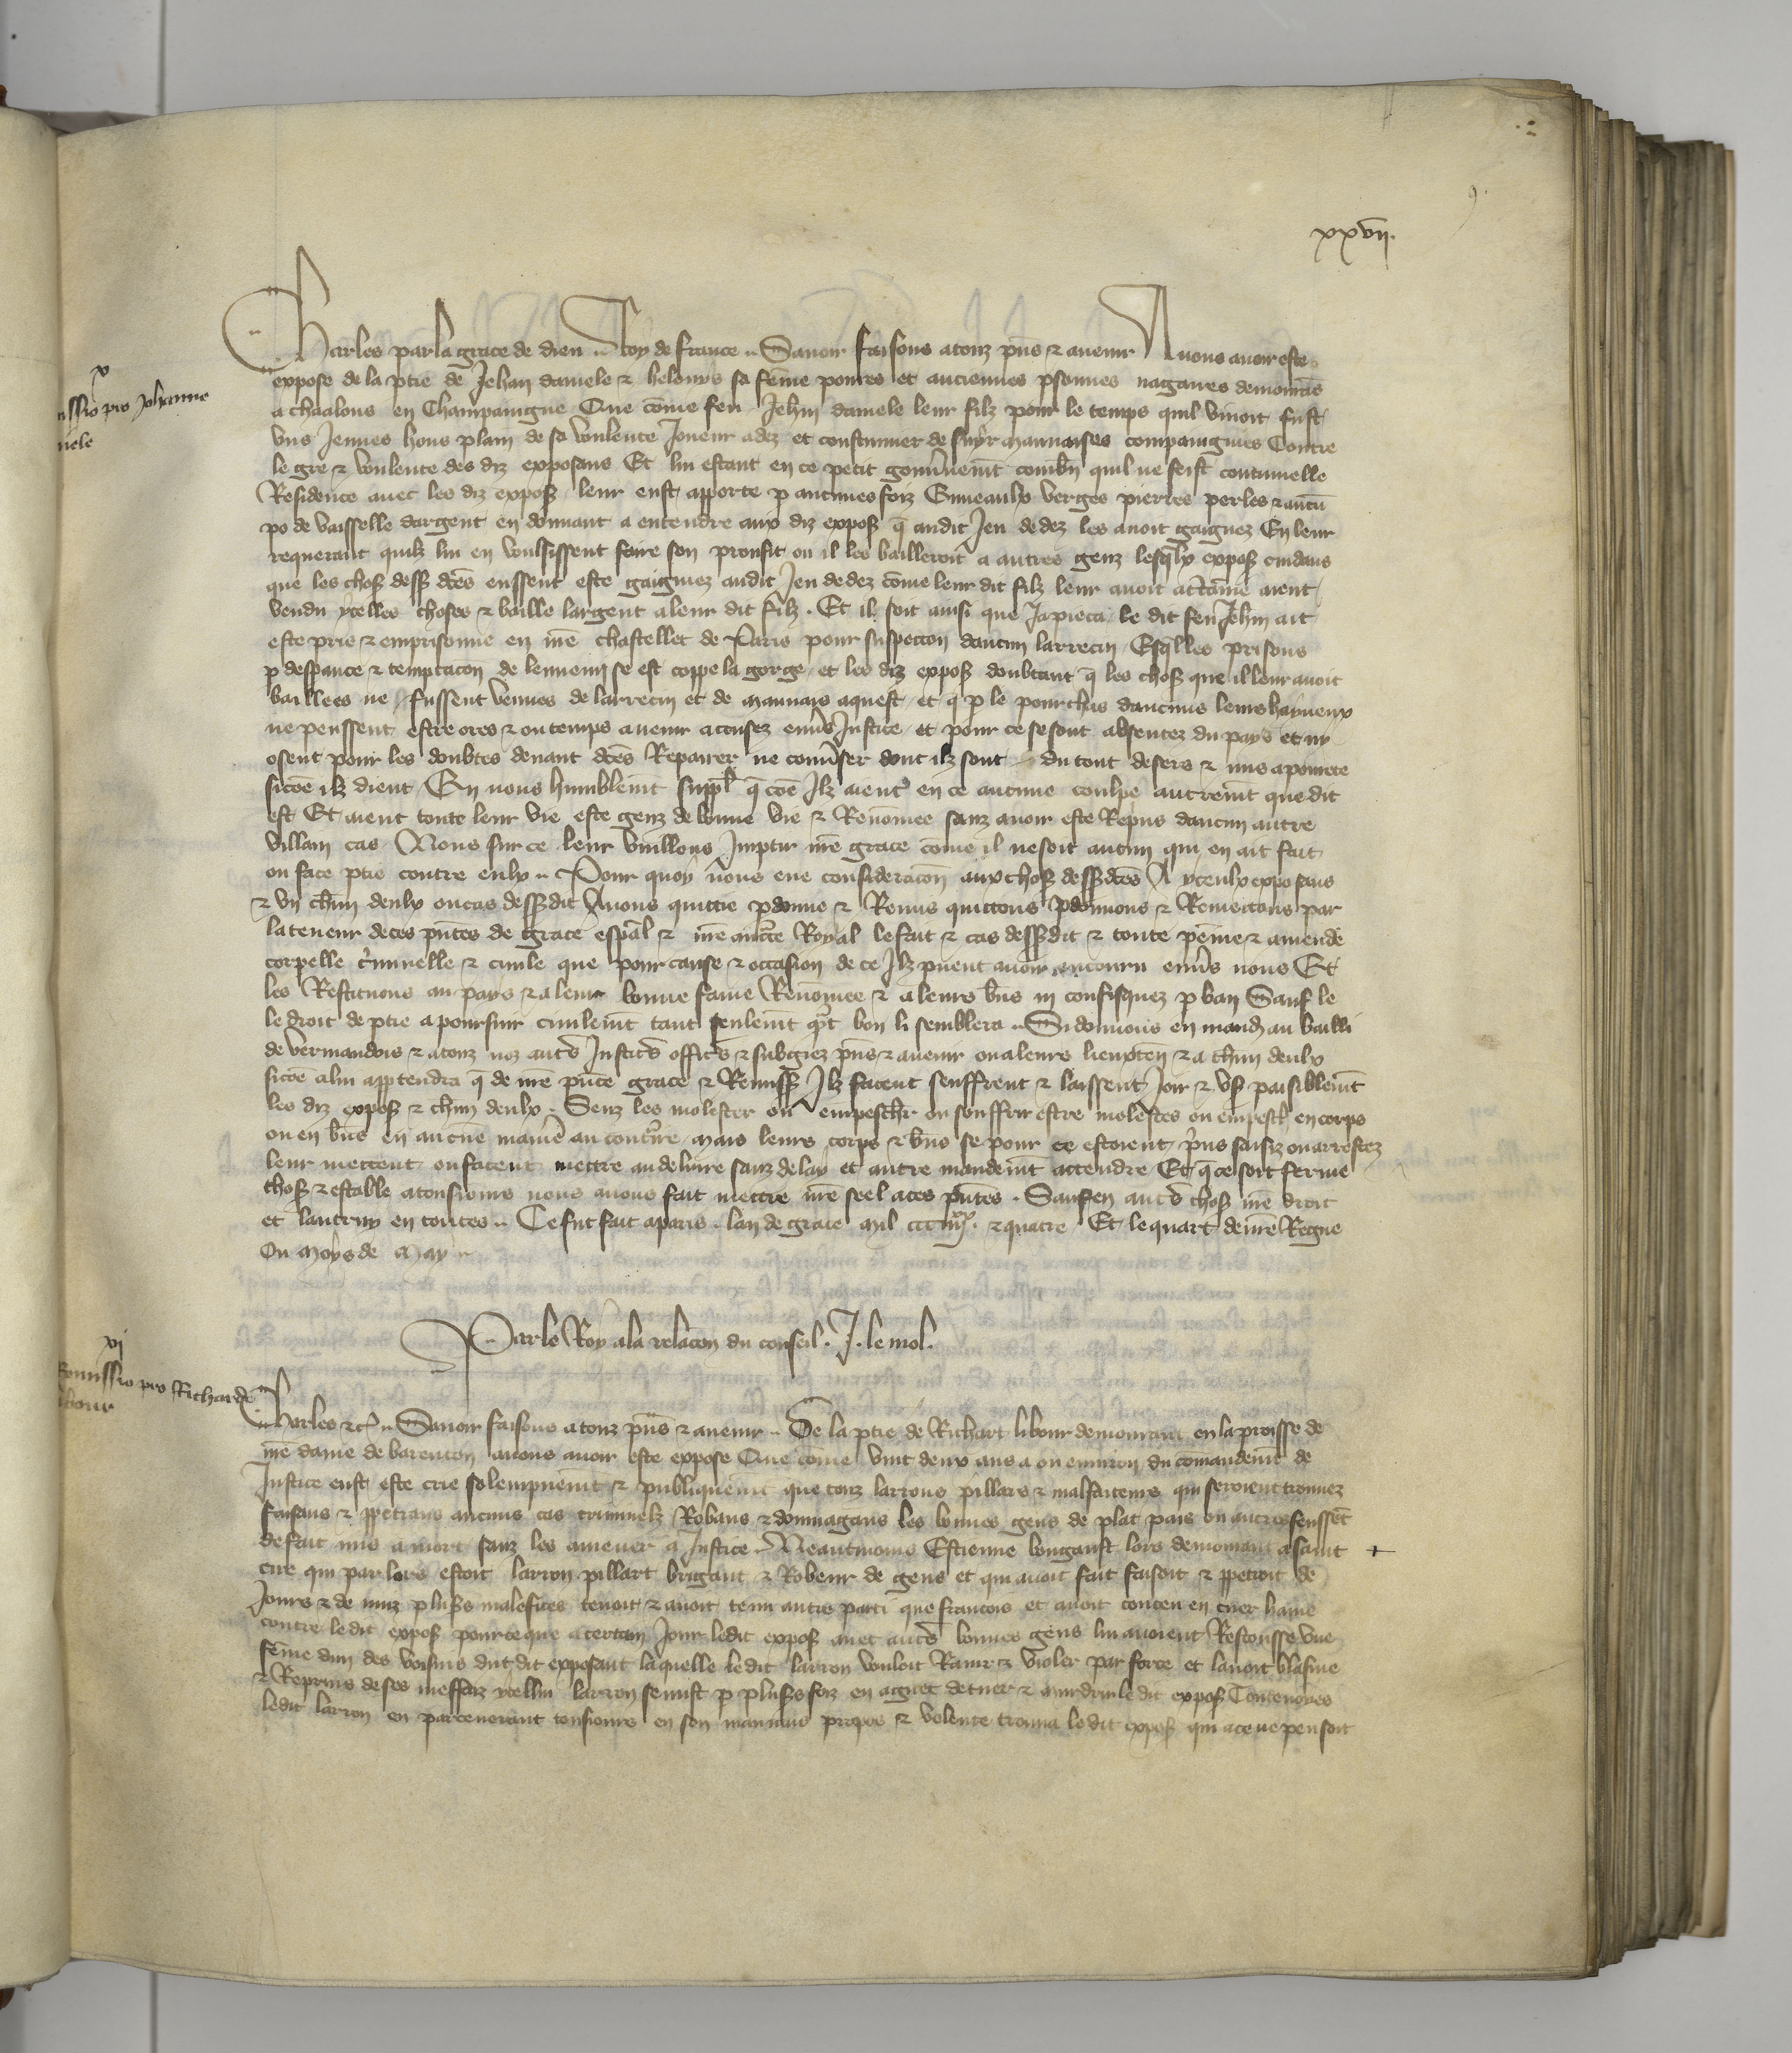 xxvii.
x
issio pro Johanne
niele
Charles par la grace de dieu Roy de france Sauoir faisons a touz pñs & auenir Nous auoir este
expose de la ptie de Jehan daniele & helouys sa fēme poures et anciennes psonnes nagaires demourās
a chaalons en Champaingne Que cōme feu Jehin daniele leur filz pour le temps quil viuoit fust
vns Jeunes homs plain de sa voulente Joueur a dez et coustumier de suyr mauuaises compaingnies Contre
le gre & voulente des diz exposans Et lui estant en ce petit gouūnemēt combn̄ quil ne feist continuelle
Residence auec les diz expos leur eust apporte p aucunes foiz Enneaulx verges pierres perles & aucū
po de vaisselle dargent en donnant a entendre aux diz expos q̄ au dit Jeu de dez les auoit gaignez En leur
requerant quilz lui en voulsissent faire son proufit ou il les bailleroit a autres genz lesqlx expos cuidans
que les chos dess dc̄es eussent este gaignez au dit Jeu de dez cōme leur dit filz leur auoit actāme aient
vendu ycelles choses & baille largent a leur dit filz . Et il soit ainsi que Ja pieca le dit feu Jehin ait
este pris & emprisonne en nr̄e chastellet de Paris pour suspeccon daucun larrecin Esqlles prisons
p despance & temptacon de lennemi se est coppe la gorge et les diz expos doubtant q̄ les chos que il leur auoit
baillees ne fussent venues de larrecin et de mauuais aquest et q̄ p le pourchas daucuns leurs hayneux
ne peussent estre ores & ou temps auenir accusez enūs Justice et pour ce se sont absentez du pays et ny
osent pour les doubtes deuant dc̄es Repairer ne conūser dont ilz sont du tout desers & mis a pourete
sicōe ilz dient En nous humblemēt suppl q̄ cōe Ilz naient en ce aucune coulpe autremēt que dit
est Et aient toute leur vie este genz de bonne vie & Renōmee sanz auoir este Repris daucun autre
villain cas Nous sur ce leur vuillons Imptir nr̄e grace cōme il ne soit aucun qui en ait fait
ou face ptie contre eulx Pour quoy nous eue consideracōn aux chos dess dc̄es A yceulx exposans
& vn chn̄ deulx ou cas dess dit Auons quittie pdonne & Remis quittons pdonnons & Remectons par
la teneur de ces pn̄tes de grace esp̄al & nr̄e aucte Royal le fait & cas dess dit & toute peine & amende
corpelle c̓iminelle & ciuile que pour cause & occasion de ce Ilz puent auoir encouru enūs nous Et
les Restituons au pays & a leur bonne fame Renōmee & a leurs bn̄s nj confisquez p ban Sauf le
le droit de ptie a poursuir ciuilemēt tant seulemēt q̄t bon li semblera Si donnons en mand au bailli
de vermandois & a touz noz autrs Justics offics & subgiez pn̄s & auenir ou a leurs lieuxten̄ & a chn̄ deulx
sicōe a lui apptendra q̄ de nr̄e pn̄te grace & Remiss Ilz facent seuffrent & laissent Joir & vs paisiblemēt
les diz expos & chn̄ deulx . Senz les molester ou empesch̄r ou souffrir estre molestes ou empesch en corps
ou en bn̄s en aucūe maniē au cont̓ire mais leurs corps & bn̄s se pour ce estoient pr̄ns saisiz ou arrestez
leur mettent ou facent mettre au deliure sanz delay et autre mandemēt attendre Et q̄ ce soit ferme
chos & estable a tousiours nous auons fait mettre nr̄e seel a ces pn̄tes . Sauf en autrs chos nr̄e droit
et lautruy en toutes Ce fut fait a paris lan de grace mil ccc iiijxx & quatre Et le quart de nr̄e Regne
Ou moys de may
Par le Roy a la relacōn du conseil . J . le mol .
xj
Remissio pro Richardo
libour
Charles &c̄ Sauoir faisons a touz pn̄s & auenir De la ptie de Richart libour demourant en la proisse de
nr̄e dame de barenton auons auoir este expose Que cōme vint deux ans a ou enuiron du cōmandemēt de
Justice eust este crie solempnemēt & publiquemēt que touz larrons pillars & malfaiteurs qui seroient trouuez
faisans & ppetrans aucuns cas criminelz Robans & dommagans les bonnes gens de plat pais ou autres feussēt
de fait mis a mort sanz les amener a Justice Neantmoins Estienne longaust lors demourant a saint +
cire qui par lors estoit larron pillart brigant & Robeur de gens et qui auoit fait faisoit & ppetroit de
Jours & de nuiz plusrs malefices tenoit & auoit tenu autre parti que francois et auoit conceu en cuer haine
contre le dit expos pour ce que a certain Jour le dit expos auec autrs bonnes gens lui auoient Rescousse vne
fēme dun des voisins dut dit exposant laquelle le dit larron vouloit Rauir & violer par force et lauoit blasme
& Repris de ses meffaiz ycellui larron se mist p plusrs foiz en aguet de tuer & murdrir le dit expos Contenores
le dit larron en perceuerant tousiours en son mauuais propos & volente trouua le dit expos qui a ce ne pensoit